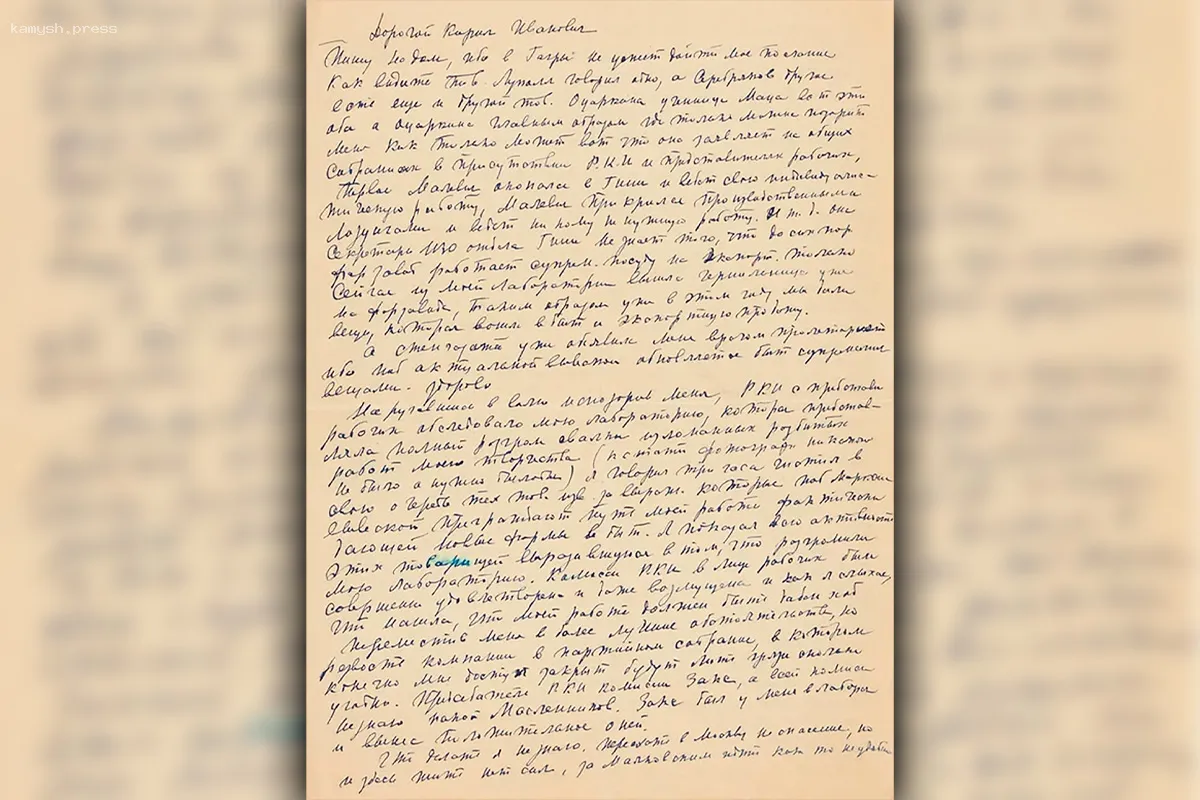 kamysh.press
Дорогой Кирил Иванович
Пишу Вам, ибо в не успеет дойти мое послание
Как видите тов. Луппол говорил одно, а Серебряков другое
есть еще и другой тов. Оцаркина ученица Маца вот эти
оба а Оцаркина главным образом где только можно позорит
меня как только может вот что она заявляет на общих
собраниях в присутствии Р.К.И и представителей рабочих,
Первое Малевич окопался в Гиии и ведет свою индивидуалис-
тическую работу, Малевич прикрылся производственными
лозунгами и ведет никому ненужную работу. И т. д. она
Секретарь ИЗО отдела Гиии не знает того, что до сих пор
фарзавод работает супрем. посуду на экспорт. только
сейчас из моей лаборатории вышла чернильница уже
на фарзавод, таким образом уже в этом году мы дали
вещь, которая вошла в быт и экспортную продажу.
А стенгазета уже объявила меня врагом пролетариата
ибо под актуальной вывеской обновляется быт супремат.
вещами. здорово
в меня, РКИ с представи
рабочих обследовало мою лабораторию, которая представ-
ляла полный разгром свалки изломанных разбитых
работ моего творчества (кстати фотографа никакого
не было а нужно было бы) я говорил три часа и
свою очередь тех тов. изо за которые под маркси
вывеской преграждают путь моей работе фактически
дающей новые формы в быт. Я показал всю активность
этих товарищей выразившуюся в том, что разгромили
мою лабораторию. Комиссия РКИ в лице рабочих была
совершенно удовлетворена и даже возмущена и как я слышал,
что нашла, что моей работе должен быть дадан ход
переместив меня в более лучшие обстоятельства, но
резвость компании в партийном собрании, в котором
конечно мне доступ закрыт будут лить грязи сколько
угодно. Председатель РКИ комиссии Закс, а всей комис
незнаю какой Масленников. Закс был у меня в лабора
и вынес положительное о ней.
Что делать я незнаю. переехать в Москву не спасение, но
и здесь жить нет сил, за Маяковским идти как то неудобн